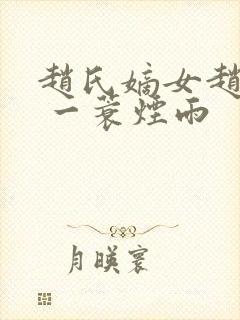 趙氏嫡女趙
一蓑煙雨
月暎寰